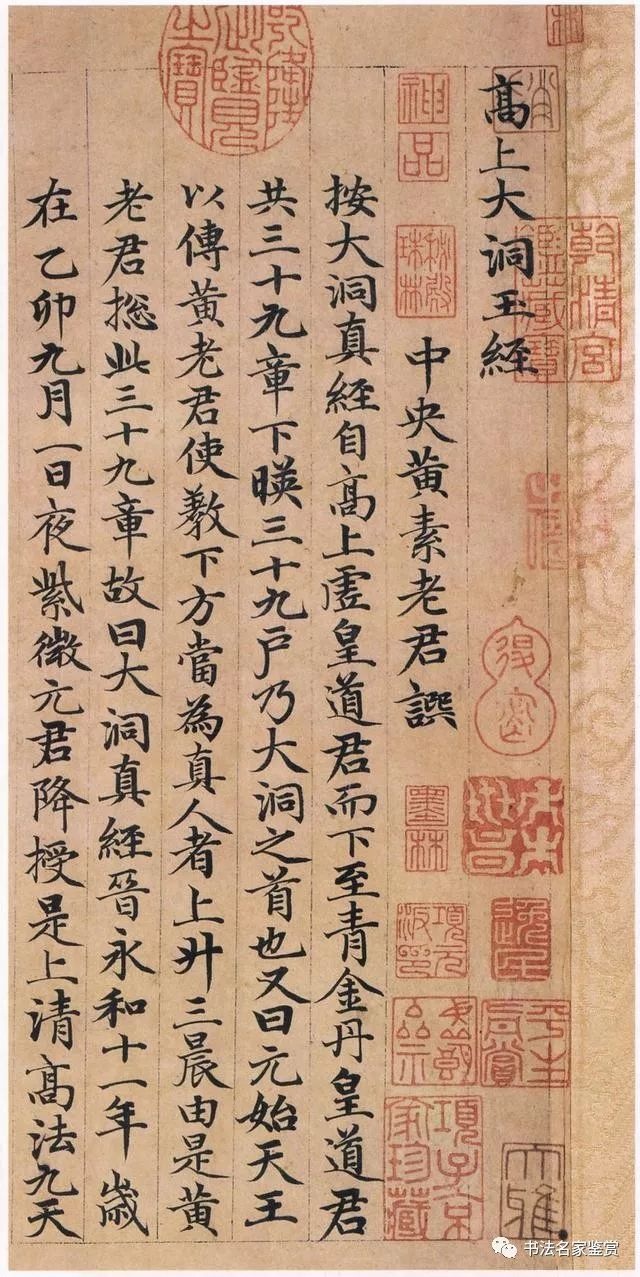 高上大洞玉經
中央黃素老君譔
按大洞真經自高上虛皇道君而下至青金丹皇道君
共三十九章下暎三十九戶乃大洞之首也又曰元始天王
以傳黃老君使教下方當為真人者上升三晨由是黃
老君揔此三十九章故曰大洞真經晉永和十一年歲
在乙卯九月一日夜紫微元君降授是上清高法九天
乾清宮鑑藏寶
神品
墨林
項子京家珍藏
平生真賞
大雅
书法名家鉴赏